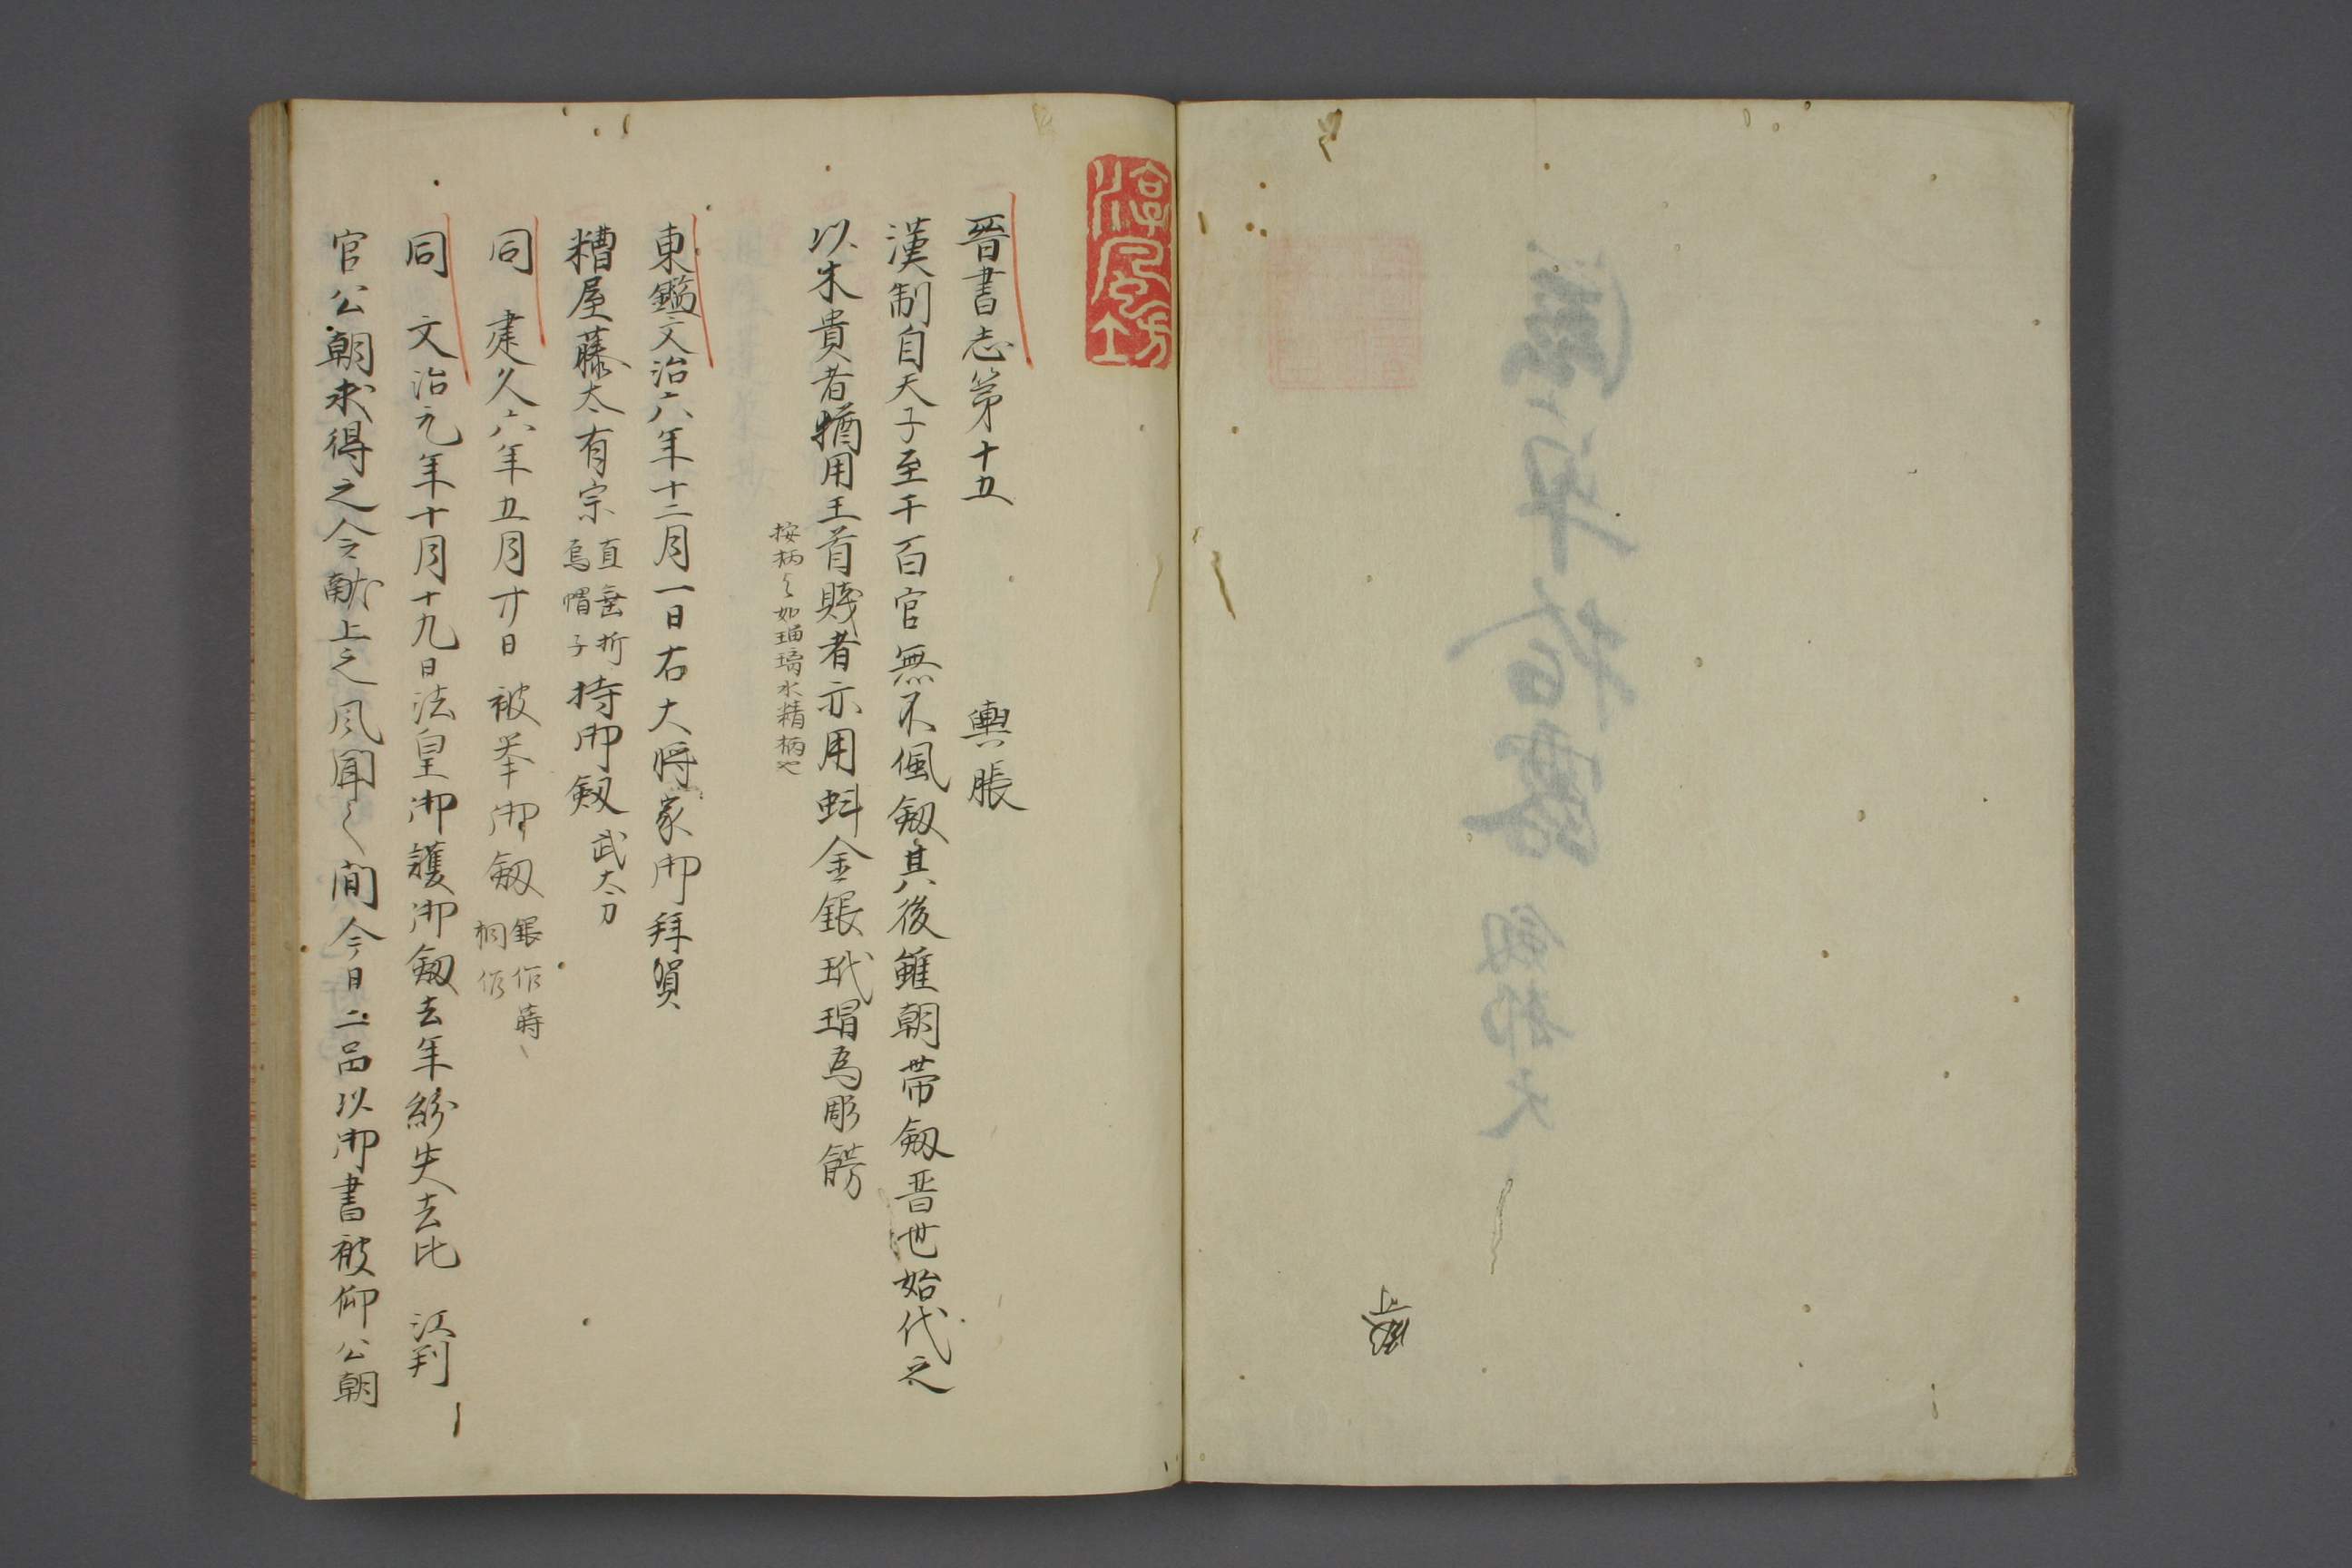 淳風坊
晋書志第十五　輿脹
漢制自天子至千百官無不佩劔其後雖朝帯劔晋世始代之
以木貴者猶用王首賤者亦用蚌金銀玳瑁為彫餝
按柄々如瑠璃水精柄也
東鑑文治六年十二月一日右大将家御拜賀
糟屋藤太有宗 直垂折烏帽子 持御劔 武太刀
同　建久六年五月廿日　被奉御劔 銀作蒔
同　文治元年十月十九日法皇御護御劔去年紛失去比　江判
官公朝求得之令献上之風聞之間今日二品以御書被仰公朝